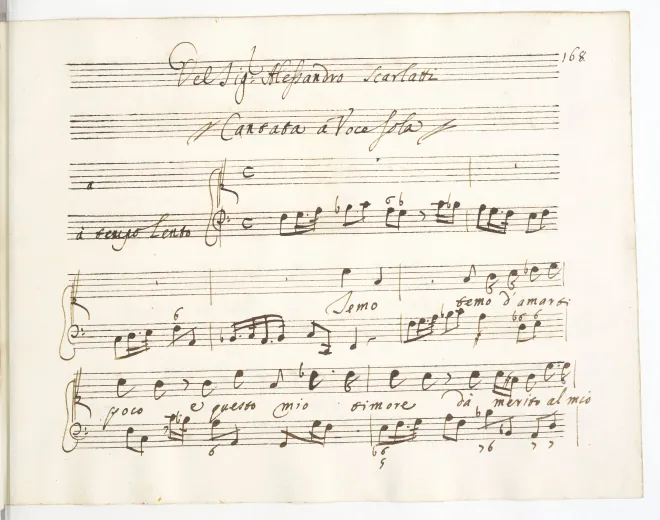 168
Del Sig.r Alessandro Scarlatti
Cantata a Voce Sola
à tempo Lento
Temo temo d'amarti
poco e questo mio timore dà merito al mio